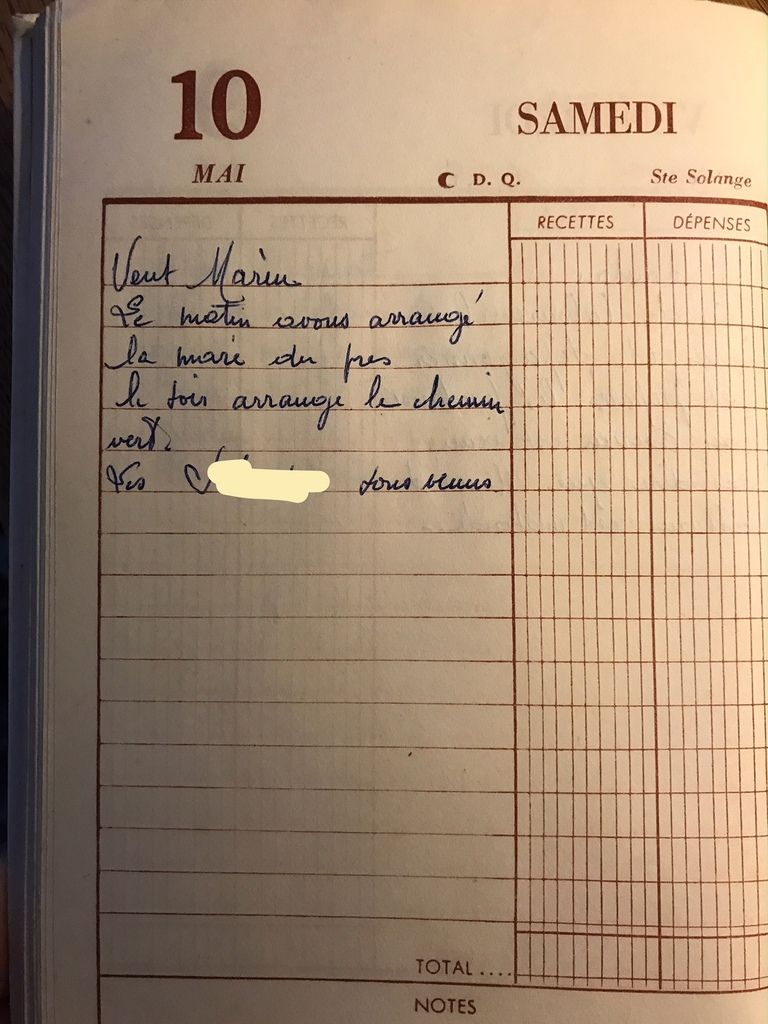 10
SAMEDI
MAI
D. Q.
Ste Solange
RECETTES
DÉPENSES
Vent Marin
Le matin avons arrangé
la mare du pres
le soir arrange le chemin
vert
Les
sons venus
TOTAL ....
NOTES